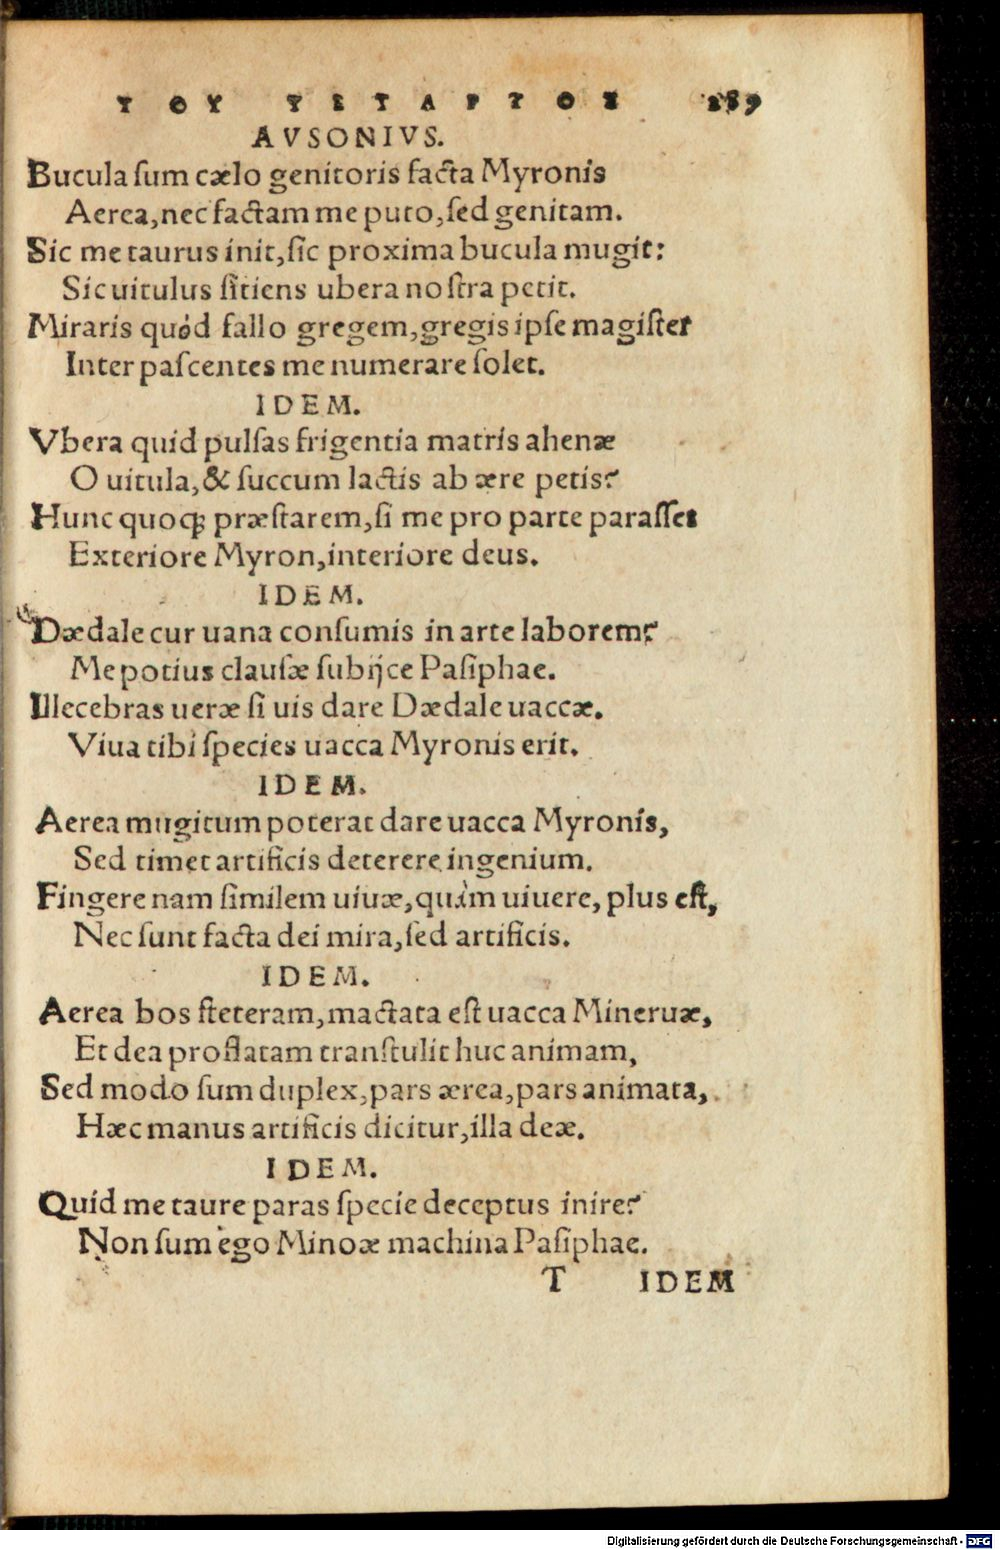 ΤΟΥ ΤΕΤΑΡΤΟΥ 289
AVSONIVS.
Bucula ſum cælo genitoris facta Myronis
Aerea, nec factam me puto, ſed genitam.
Sic me taurus init, ſic proxima bucula mugit:
Sic uitulus ſitiens ubera noſtra petit.
Miraris quòd fallo gregem, gregis ipſe magiſter
Inter paſcentes me numerare ſolet.
IDEM.
Vbera quid pulſas frigentia matris ahenæ
O uitula, & ſuccum lactis ab ære petis?
Hunc quoqꝫ præſtarem, ſi me pro parte paraſſet
Exteriore Myron, interiore deus.
IDEM.
Dædale cur uana conſumis in arte laborem?
Me potius clauſæ ſubijce Paſiphae.
Illecebras ueræ ſi uis dare Dædale uaccæ.
Viua tibi ſpecies uacca Myronis erit.
IDEM.
Aerea mugitum poterat dare uacca Myronis,
Sed timet artificis deterere ingenium.
Fingere nam ſimilem uiuæ, quàm uiuere, plus eſt,
Nec ſunt facta dei mira, ſed artificis.
IDEM.
Aerea bos ſteteram, mactata eſt uacca Mineruæ,
Et dea proflatam tranſtulit huc animam,
Sed modo ſum duplex, pars ærea, pars animata,
Hæc manus artificis dicitur, illa deæ.
IDEM.
Quid me taure paras ſpecie deceptus inire?
Non ſum ego Minoæ machina Paſiphae.
T IDEM
Digitalisierung gefördert durch die Deutsche Forschungsgemeinschaft - DFG